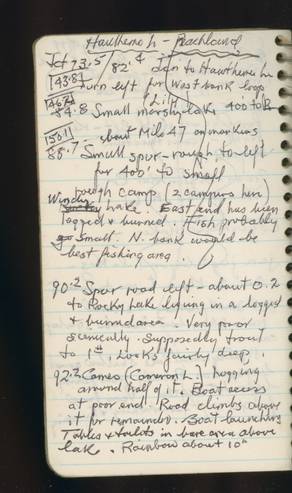 Hawthorne L - Peachland
Jct 73.5/82.4 Jctn to Hawthorne L
143.8 Turn left for West bank loop
146.2 84.8 Small marshy lake 400' to R
150.1 about Mile 47 on markers
88.7 Small spur - rough to left
for 400' to small
rough camp (2 campers here)
Windy Lake. East end has been
logged & burned. Fish probably
small. N. bank would be
best fishing area.
90.2 Spur road left - about 0.2
to Rocky Lake lying in a logged
& burned area. Very poor
scenically. Supposedly trout
to 1#. Looks fairly deep.
92.2 Cameo (Cameron L.) logging
around half of it. Boat access
at poor end. Road climbs above
it for remainder. Boat launching
Tables & toilets in bare area above
lake. Rainbow about 10"